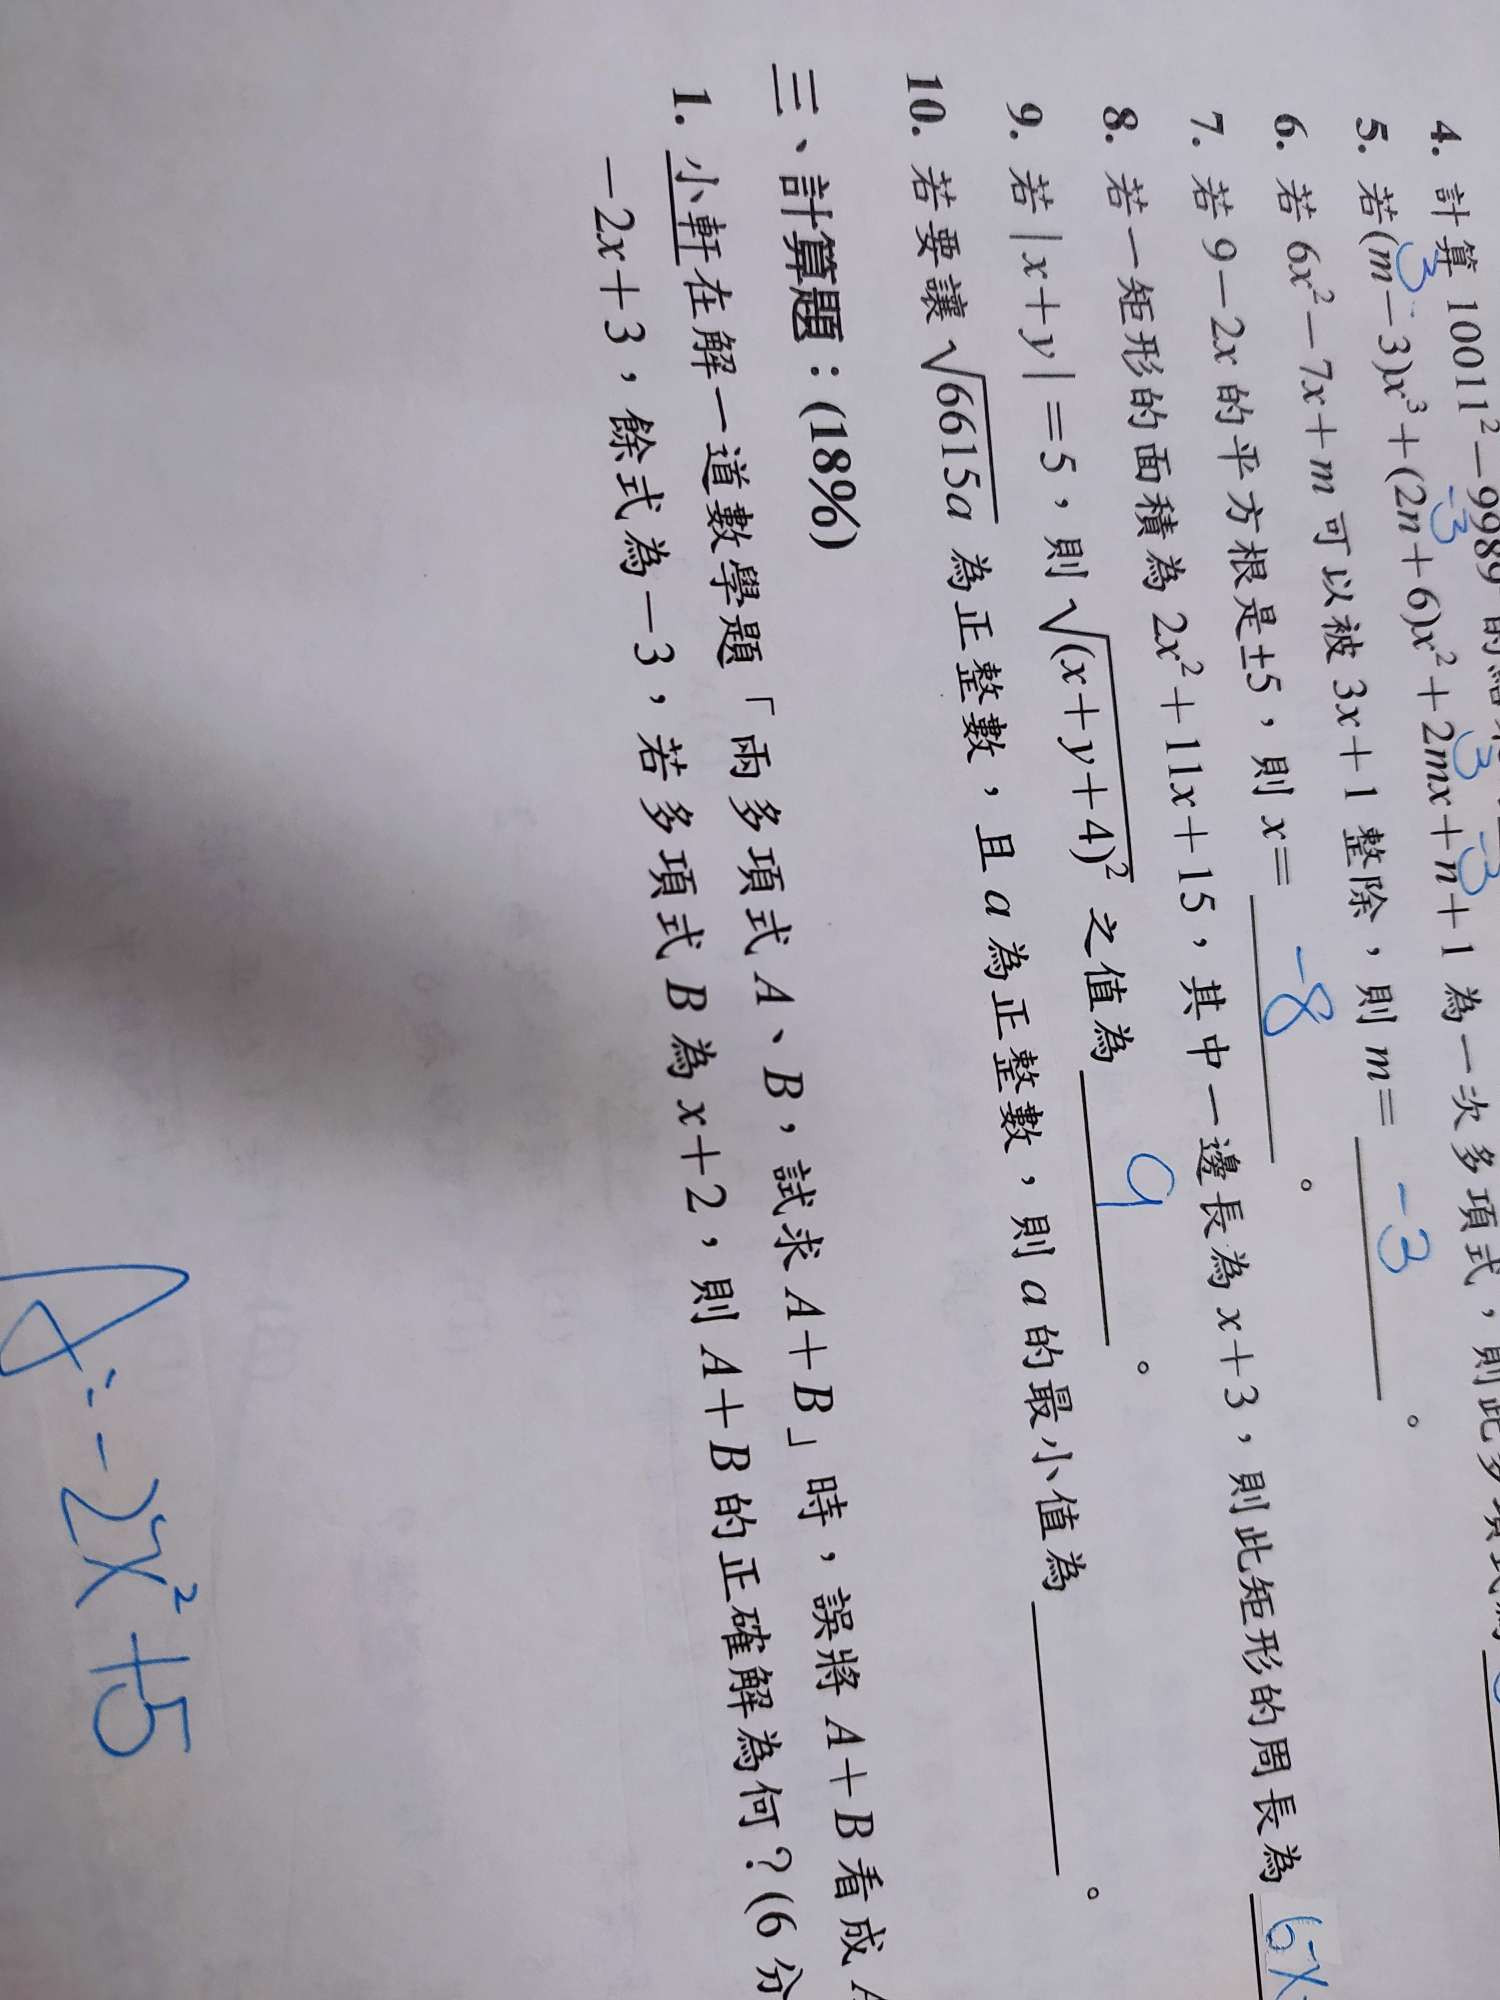 4. 計算 10011²－9989
5. 若(m－3)x³＋(2n＋6)x²＋2mx＋n＋1 為一次多項式，則此多項式
3 -3 3 -3
6. 若 6x²－7x＋m 可以被 3x＋1 整除，則 m＝ -3 。
7. 若 9－2x 的平方根是±5，則 x＝ -8 。
8. 若一矩形的面積為 2x²＋11x＋15，其中一邊長為 x＋3，則此矩形的周長為 6x
9. 若 |x＋y|＝5，則 √(x＋y＋4)² 之值為 9 。
10. 若要讓 √6615a 為正整數，且 a 為正整數，則 a 的最小值為 。
三、計算題：(18%)
1. 小軒在解一道數學題「兩多項式 A、B，試求 A＋B」時，誤將 A＋B 看成
－2x＋3，餘式為－3，若多項式 B 為 x＋2，則 A＋B 的正確解為何？(6 分
A:-2x²+5